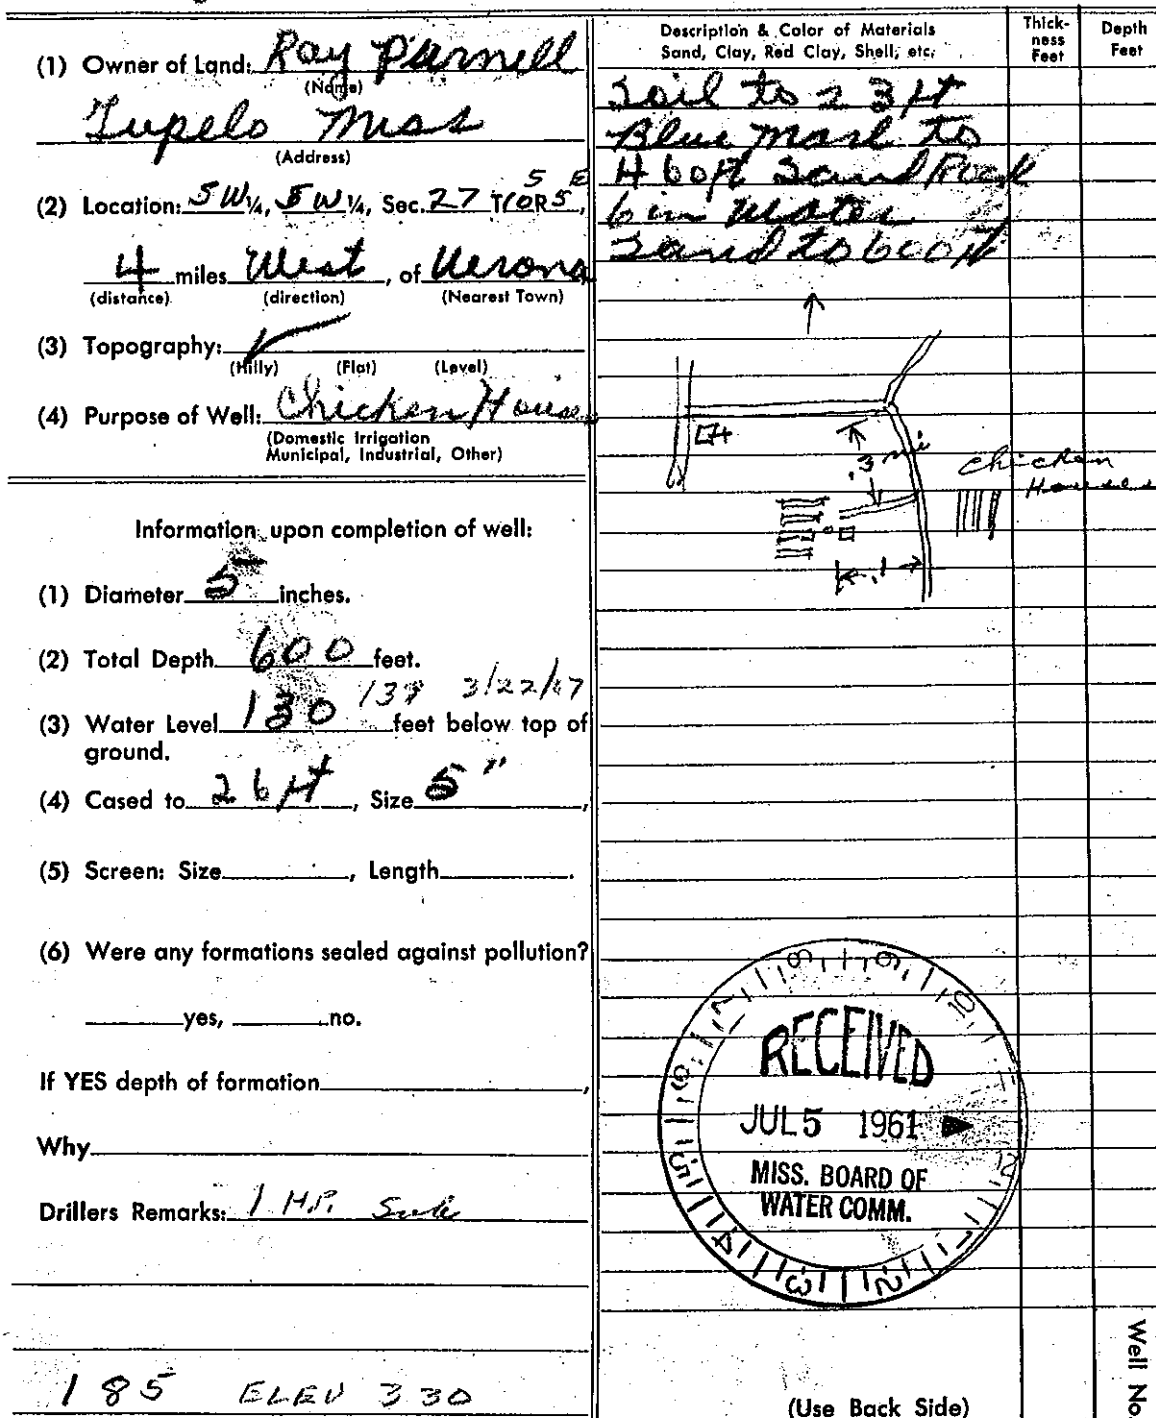 (1) Owner of Land: Ray Purnell
(Name)
Tupelo Miss
(Address)
(2) Location: SW 1/4, SW 1/4, Sec. 27 T10 S R5 E,
4 miles West, of Verona
(distance) (direction) (Nearest Town)
(3) Topography: ✓
(Hilly) (Flat) (Level)
(4) Purpose of Well: Chicken House
(Domestic Irrigation
Municipal, Industrial, Other)
Information upon completion of well:
(1) Diameter 5 inches.
(2) Total Depth 600 feet.
138 3/22/67
(3) Water Level 130 feet below top of
ground.
(4) Cased to 26 ft, Size 5",
(5) Screen: Size, Length.
(6) Were any formations sealed against pollution?
yes, no.
If YES depth of formation,
Why
Drillers Remarks: 1 H.P. Sub
185 ELEV 330
Description & Color of Materials
Sand, Clay, Red Clay, Shell, etc.
Thick-
ness
Feet
Depth
Feet
Soil to 23 ft
Blue Marl to
460 ft Sand Rock
6 in Water
Sand to 600 ft
.3 mi
Chicken
Houses
.1
RECEIVED
JUL 5 1961
MISS. BOARD OF
WATER COMM.
Well No.
(Use Back Side)